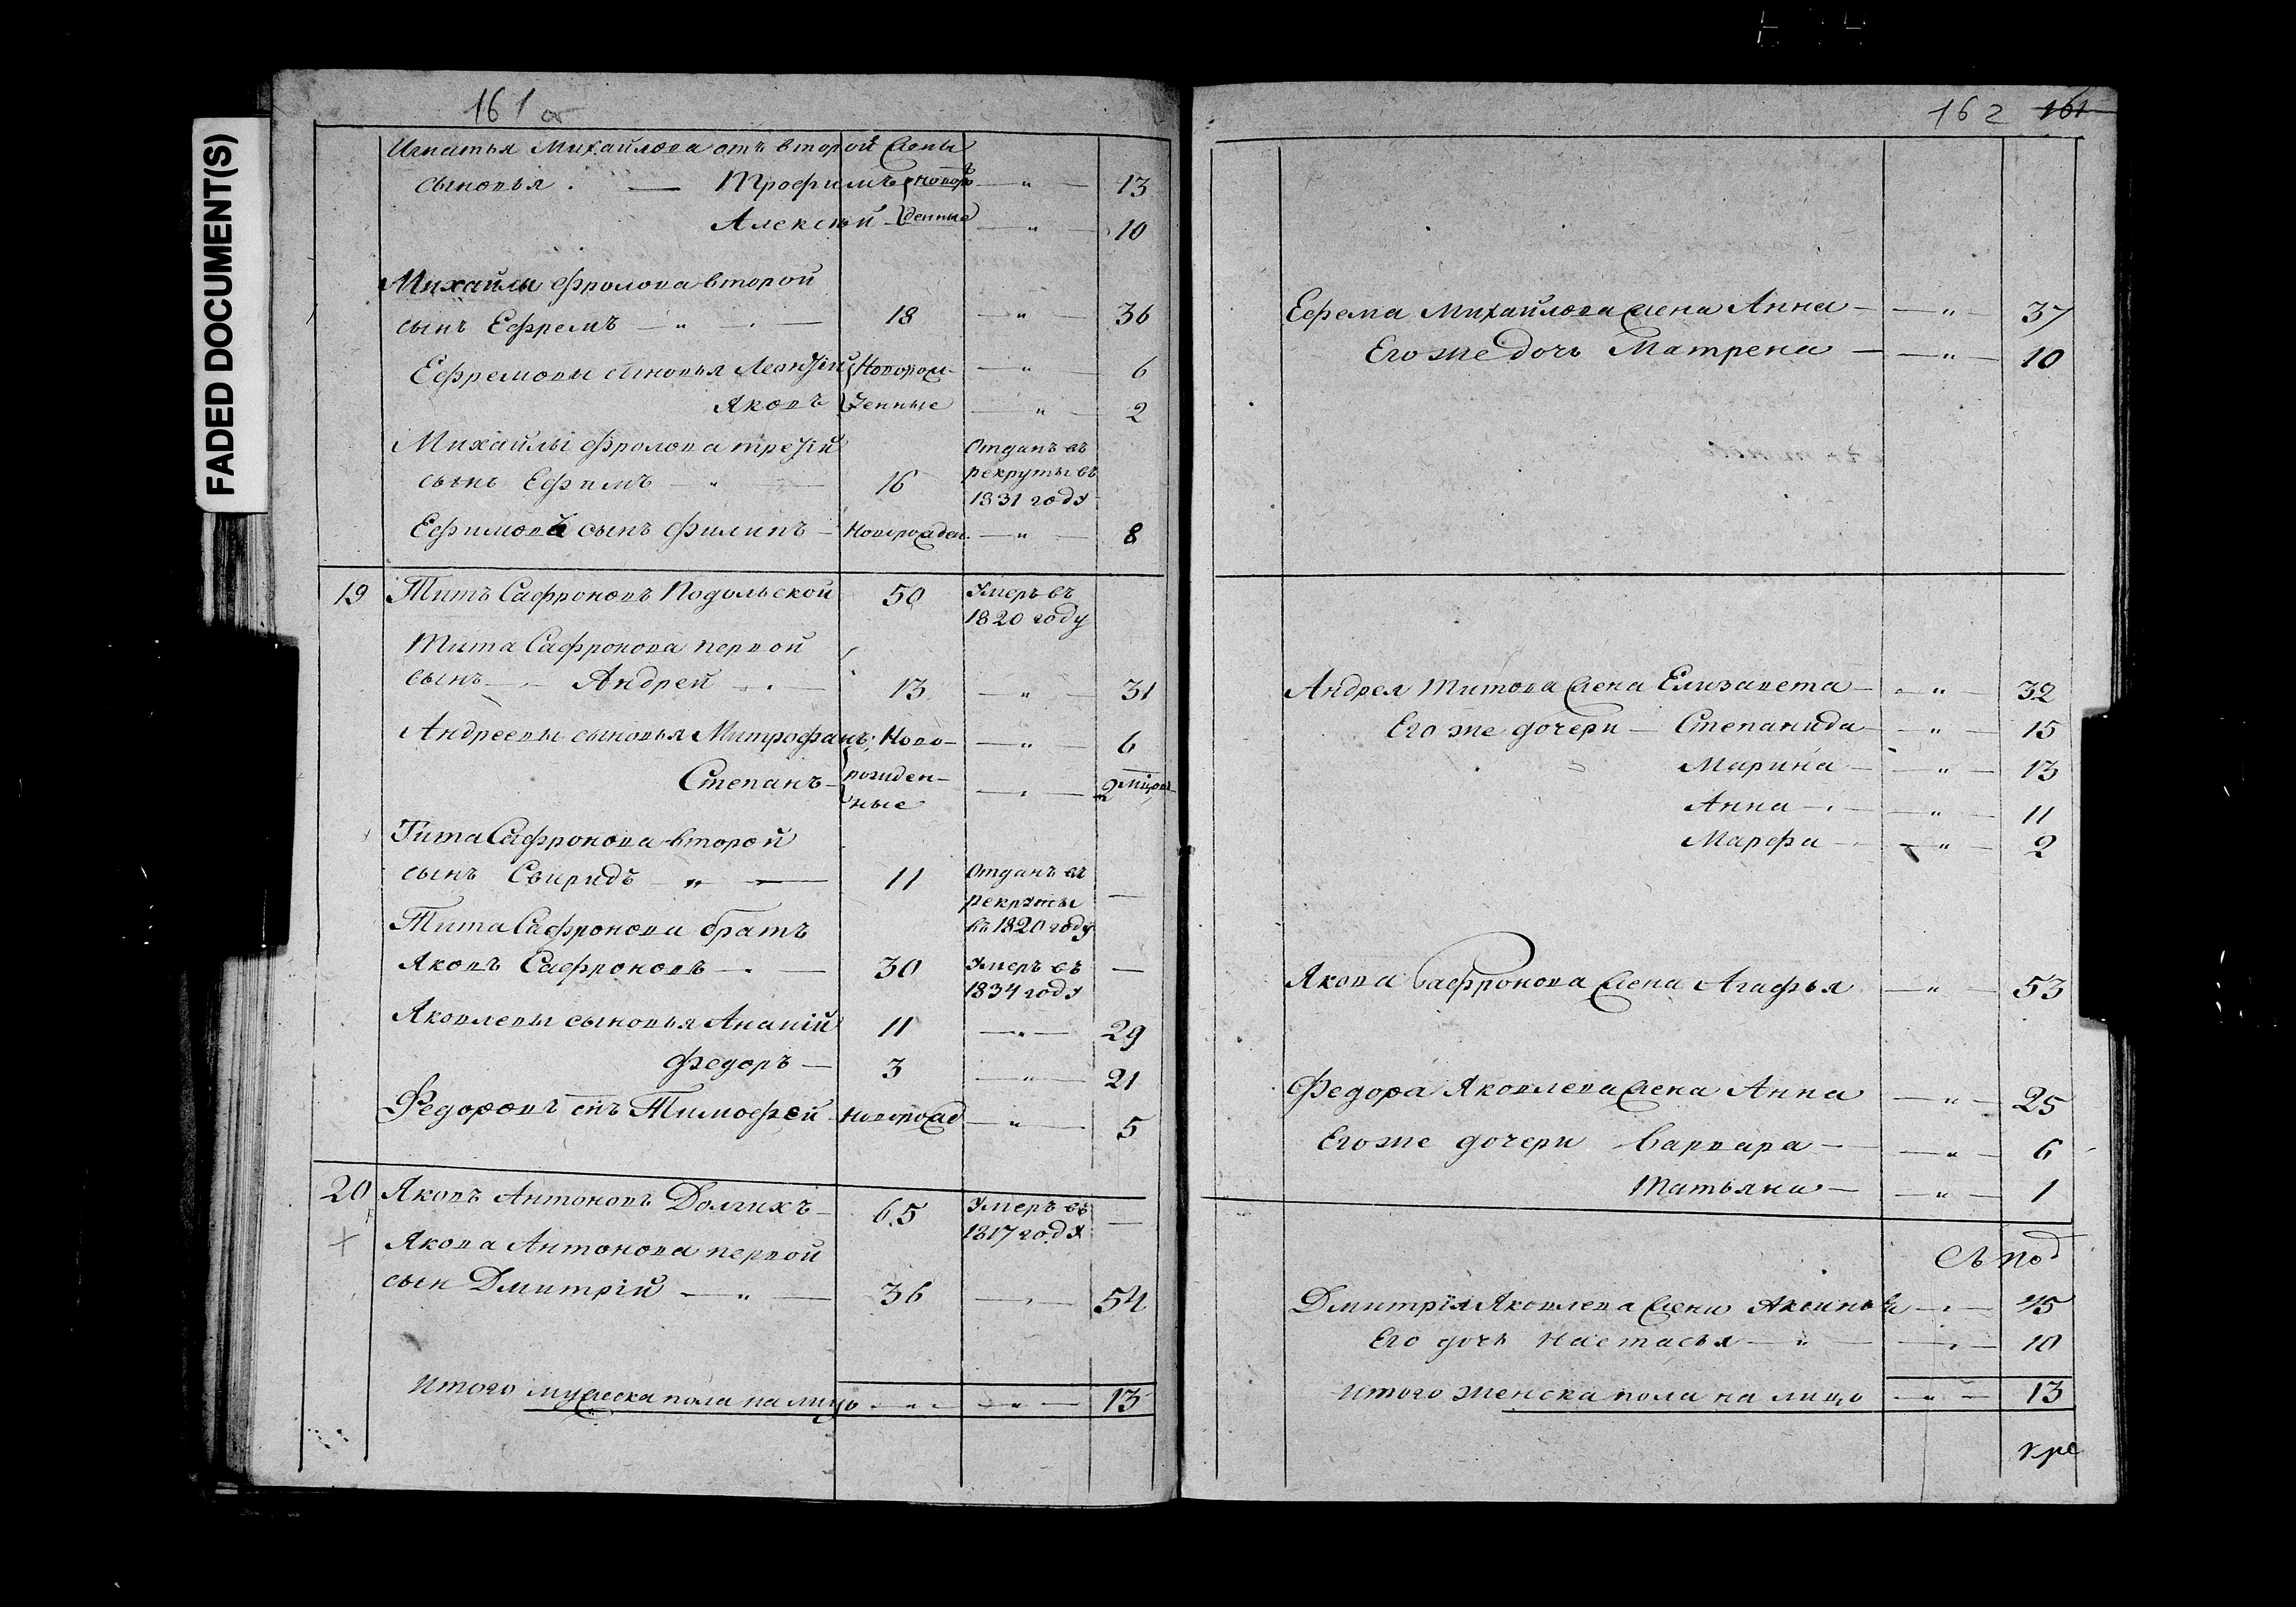 FADED DOCUMENT(S)
161 об
Игнатья Михайлова отъ второй жены
сыновья . — Трофимъ новорож — „ — 13
Алексѣй денные — „ — 10
Михайлы Фролова второй
сынъ Ефремъ — „ — 18 — „ — 36
Ефремовы сыновья Леонтій Новорож- — „ — 6
Яковъ денные — „ — 2
Михайлы Фролова третій
сынъ Ефимъ — „ — 16 Отданъ въ рекруты въ 1831 году
Ефимовъ сынъ Филипъ — Новорожден. — „ — 8
19 Титъ Сафроновъ Подольской 50 Умеръ въ 1820 году
Тита Сафронова первой
сынъ — Андрей — 13 — „ — 31
Андреевы сыновья Митрофанъ Ново- — „ — 6
Степанъ — рожден- — „ — 2 мѣсяц
ные
Тита Сафронова второй
сынъ Свиридъ — „ — 11 Отданъ въ рекруты въ 1820 году —
Тита Сафронова братъ
Яковъ Сафроновъ — 30 Умеръ въ 1834 году —
Яковлевы сыновья Ананій 11 — „ — 29
Федоръ — 3 — „ — 21
Федоровъ снъ Тимофей Новорожд — „ — 5
20 Яковъ Антоновъ Долгихъ — 65 Умеръ въ 1817 году —
Якова Антонова первой
сын Дмитрій — „ — 36 — „ — 54
Итого мужеска пола на лицо — „ — „ — 13
162 161
Ефрема Михайлова жена Анна — „ — 37
Его же дочь Матрена — „ — 10
Андрея Титова жена Елизавета — „ — 32
Его же дочери — Степанида — „ — 15
Марина — „ — 13
Анна — „ — 11
Марфа — „ — 2
Якова Сафронова жена Агафья — „ — 53
Федора Яковлева жена Анна — „ — 25
Его же дочери Варвара — „ — 6
Татьяна — „ — 1
Дмитрія Яковлева жена Аксинья — „ — 45
Его дочь Настасья — „ — 10
Итого женска пола на лицо — „ — 13